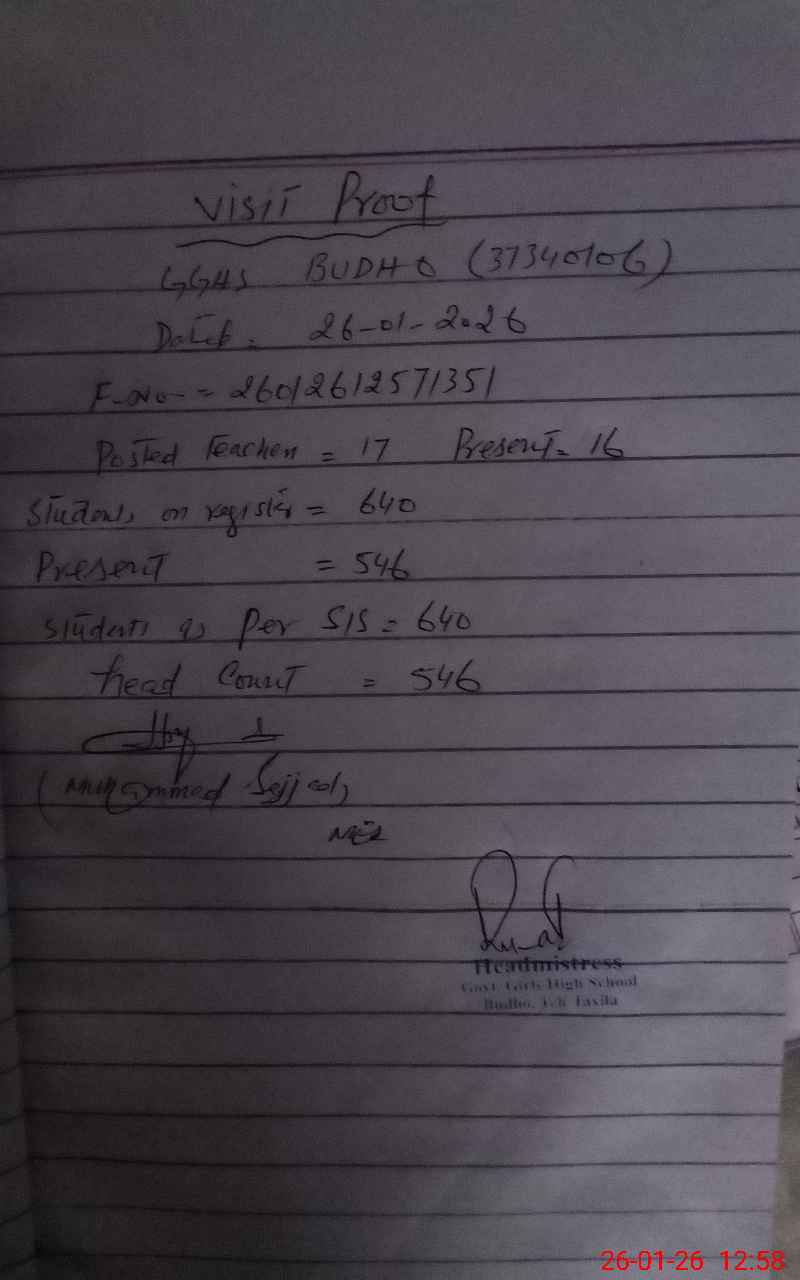 Visit Proof
GGHS BUDHO (37340106)
Dated. 26-01-2026
F-No- = 26012612571351
Posted Teacher = 17 Present = 16
Students on register = 640
Present = 546
Students as per SIS = 640
head Count = 546
(Muhammad Sajjad)
Headmistress
Govt. Girls High School
Budho, Teh Taxila
26-01-26 12:58